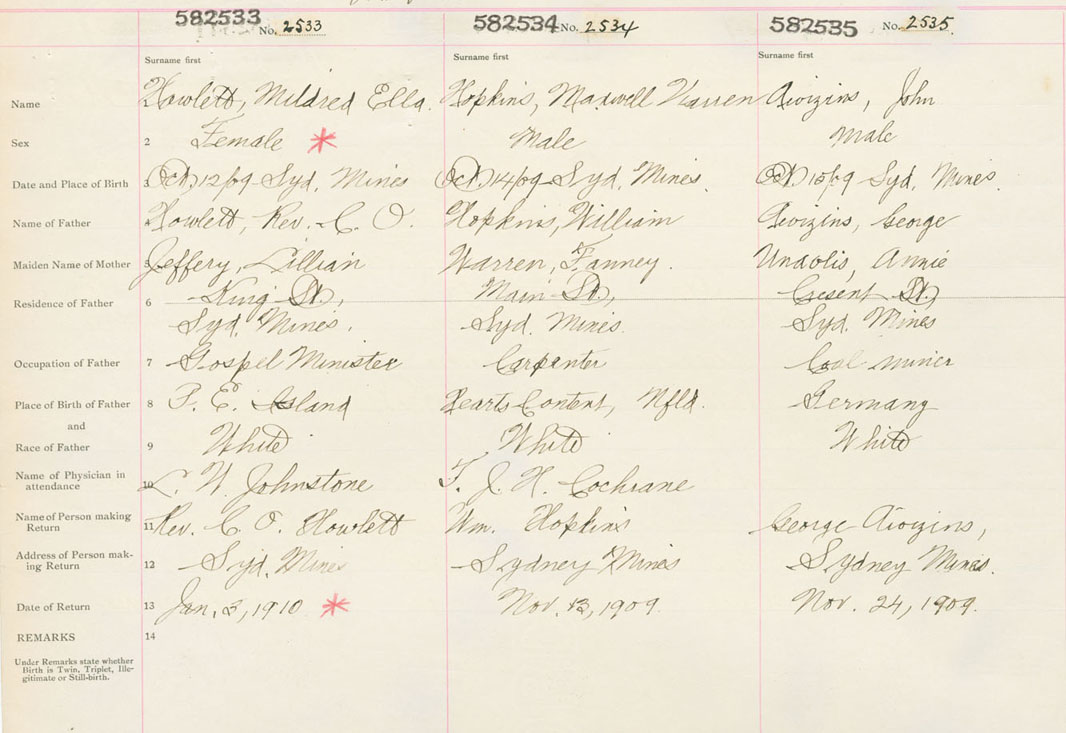 582533 No. 2533 582534 No. 2534 582535 No. 2535.
Surname first Surname first Surname first
Name Howlett, Mildred Ella. Hopkins, Maxwell Warren Aivizins, John
Sex 2 Female Male Male
Date and Place of Birth 3 Oct 12/09 Syd. Mines Oct 14/09 Syd. Mines. Oct 15/09 Syd. Mines.
Name of Father 4 Howlett, Rev. C. O. Hopkins, William Aivizins, George
Maiden Name of Mother 5 Jeffery, Lillian Warren, Fanney. Annie
Residence of Father 6 King St, Main St, Cresent St,
Syd. Mines. Syd. Mines. Syd. Mines
Occupation of Father 7 Gospel Minister Carpenter Coal miner
Place of Birth of Father 8 P. E. Island Hearts Content, Nfld. Germany
and
Race of Father 9 White White White
Name of Physician in
attendance 10 L. W. Johnstone T. J. H. Cochrane
Name of Person making
Return 11 Rev. C. O. Howlett Wm. Hopkins George Aivizins,
Address of Person mak-
ing Return 12 Syd. Mines Sydney Mines Sydney Mines.
Date of Return 13 Jan. 3, 1910 Nov. 13, 1909. Nov. 24, 1909.
REMARKS 14
Under Remarks state whether
Birth is Twin, Triplet, Ille-
gitimate or Still-birth.